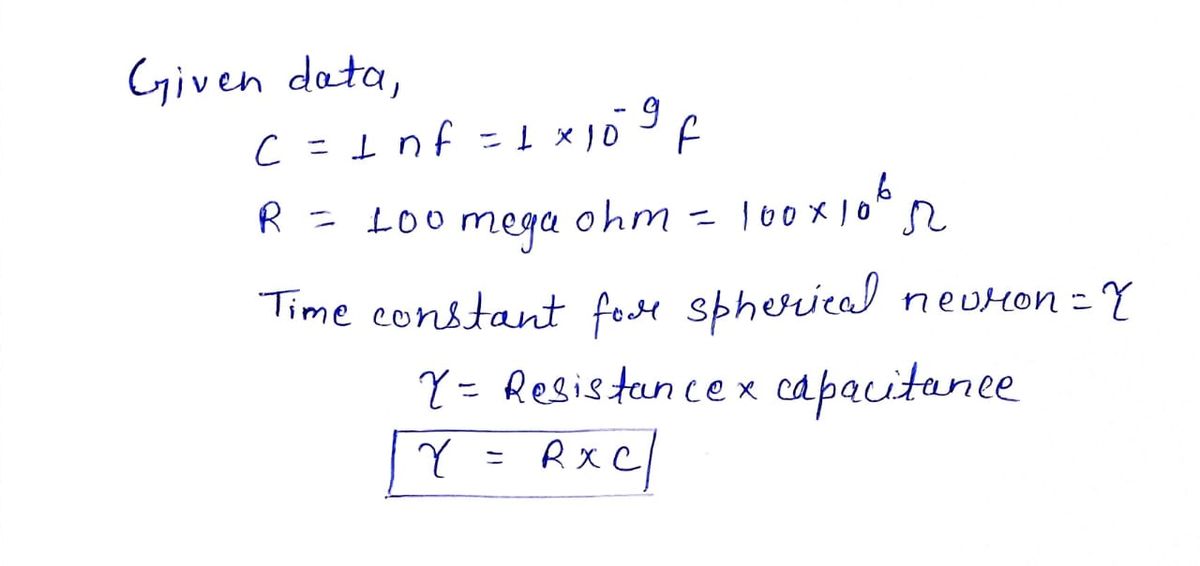 Given data,
C = 1 nf = 1 × 10⁻⁹ f
R = 100 mega ohm = 100 × 10⁶ Ω
Time constant for spherical neuron = τ
τ = Resistance x capacitance
τ = R x C